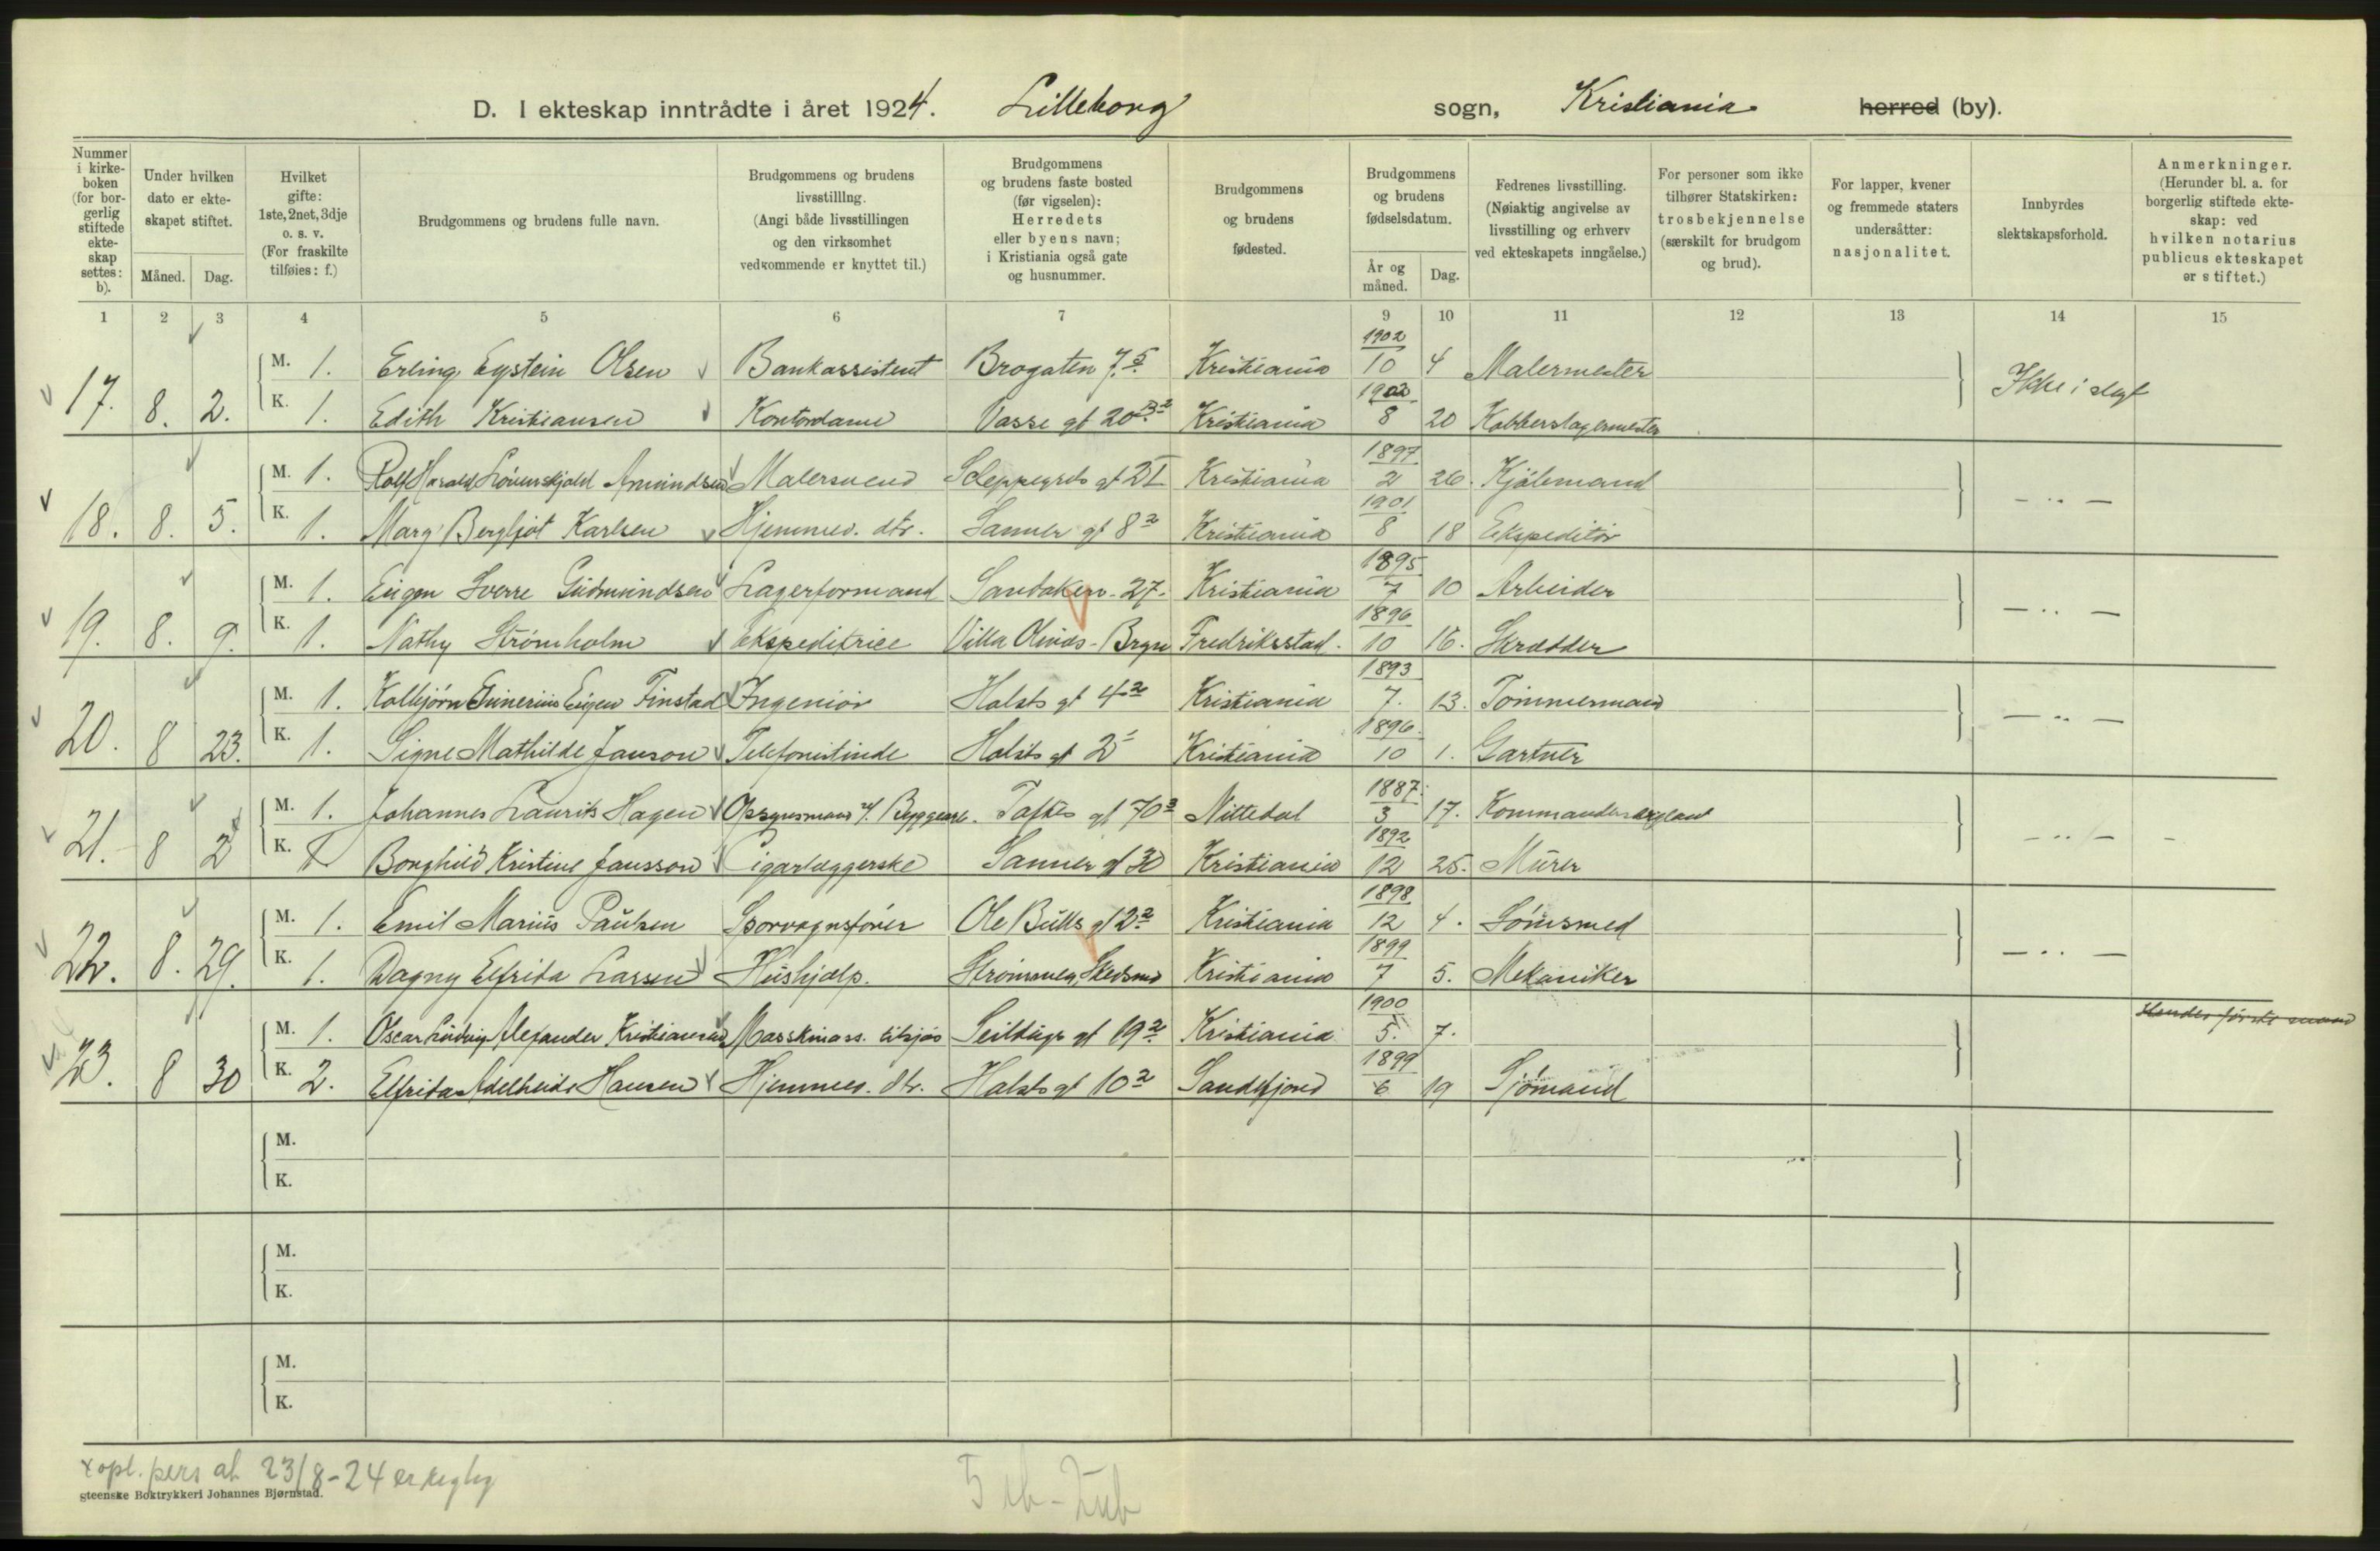 D. I ekteskap inntrådte i året 1924. Lilleborg sogn, Kristiania herred (by).
Nummer i kirke-boken (for bor-gerlig stiftede ekte-skap settes: b).
Under hvilken dato er ekte-skapet stiftet.
Måned. Dag.
Hvilket gifte: 1ste, 2net, 3dje o. s. v. (For fraskilte tilføies: f.)
Brudgommens og brudens fulle navn.
Brudgommens og brudens livsstilllng. (Angi både livsstillingen og den virksomhet vedkommende er knyttet til.)
Brudgommens og brudens faste bosted (før vigselen): Herredets eller byens navn; i Kristiania også gate og husnummer.
Brudgommens og brudens fødested.
Brudgommens og brudens fødselsdatum.
År og måned. Dag.
Fedrenes livsstilling. (Nøiaktig angivelse av livsstilling og erhverv ved ekteskapets inngåelse.)
For personer som ikke tilhører Statskirken: trosbekjennelse (særskilt for brudgom og brud).
For lapper, kvener og fremmede staters undersåtter: nasjonalitet.
Innbyrdes slektskapsforhold.
Anmerkninger. (Herunder bl. a. for borgerlig stiftede ekte-skap: ved hvilken notarius publicus ekteskapet er stiftet.)
1 2 3 4 5 6 7 8 9 10 11 12 13 14 15
17. 8. 2. M. 1. Erling Eystein Olsen Bankassistent Brogaten 7.5 Kristiania 1902 10 4 Malermester Ikke i slegt
K. 1. Edith Kristiansen Kontordame Vasse gt 20 Kristiania 1902 8 20 Kobberslagermester
18. 8. 5. M. 1. Rolf Harald Løvenskjold Amundsen Malersvend Schleppegrels gt 2I Kristiania 1897 2 26. Kjølemand - " -
K. 1. Marg. Bergljot Karlsen Hjemmev. dtr. Sanner gt 8 2 Kristiania 1901 8 18 Ekspeditør
19. 8. 9. M. 1. Eugen Sverre Gudmundsen Lagerformand Sandakerv. 27. Kristiania 1895 7 10 Arbeider - " -
K. 1. Nathy Strømholm Ekspeditrice Villa Bryn Fredriksstad. 1896 10 16. Skrædder
20. 8 23. M. 1. Kolbjørn Eugen Finstad Ingeniør Holsts gt 4 2 Kristiania 1893 7. 13. Tømmermand - " -
K. 1. Signe Mathilde Janson Telefonistinde Holsts gt 2 Kristiania 1896. 10 1. Gartner
21. 8 2 M. 1. Johannes Laurits Hagen Opsynsmand v/ Byggearb. Toftes gt 70 3 Nittedal 1887. 3 17. - " -
K. 1 Borghild Kristine Jansson Cigarlæggerske Sanner gt 30 Kristiania 1892 12 25. Murer
22. 8. 29. M. 1. Emil Marius Paulsen Sporvognsfører Ole Bulls gt 2 2 Kristiania 1898 12 4. - " -
K. 1. Dagny Elfrida Larsen Hushjælp. Strømmen, Skedsmo Kristiania 1899 7 5. Mekaniker
23. 8 30 M. 1. Oscar Ludvig Alexander Kristiansen Maskinass. tilsjøs Seildugs gt 19 2 Kristiania 1900 5. 7. Hendes første mand
K. 2. Elfrida Adelheide Hansen Hjemmev. dtr. Holsts gt 10 2 Sandefjord 1899 6 19 Sjømand
M.
K.
M.
K.
M.
K.
x opl. pers at 23/8-24 er
steenske Boktrykkeri Johannes Bjørnstad.